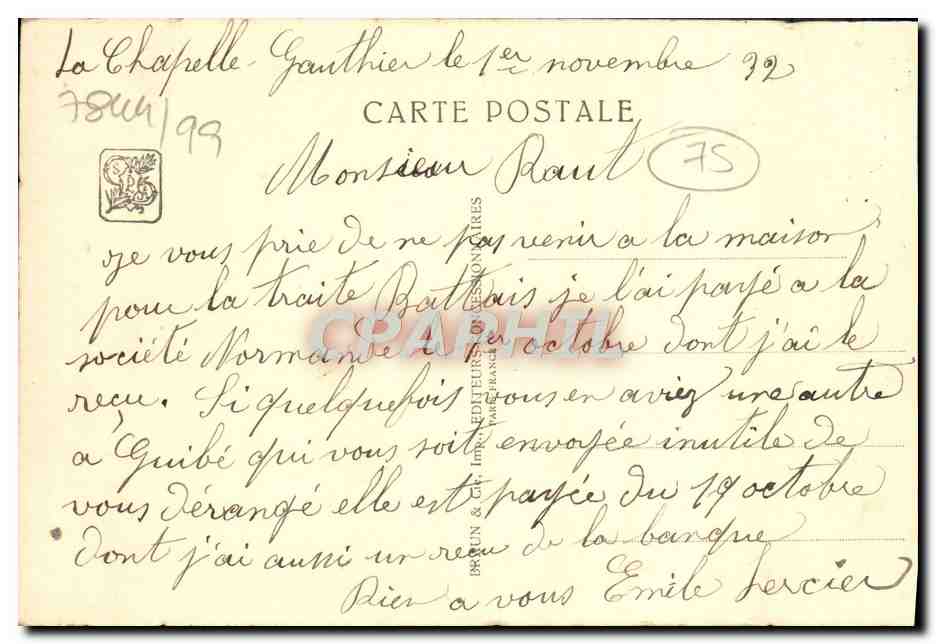 La Chapelle-Gauthier le 1er novembre 32
7844/99
CARTE POSTALE
Monsieur Raut
75
SPA
je vous prie de ne pas venir a la maison
pour la traite Battais je l'ai payé a la
société Normande le 1er octobre dont j'ai le
reçu. Si quelquefois vous en aviez une autre
a Guibé qui vous soit envoyée inutile de
vous dérangé elle est payée du 19 octobre
dont j'ai aussi un reçu de la banque
Rien a vous Emile Lercier
BRAUN & Cie, Imp.-EDITEURS-CONCESSIONNAIRES
PARIS (FRANCE)
CPARHTL